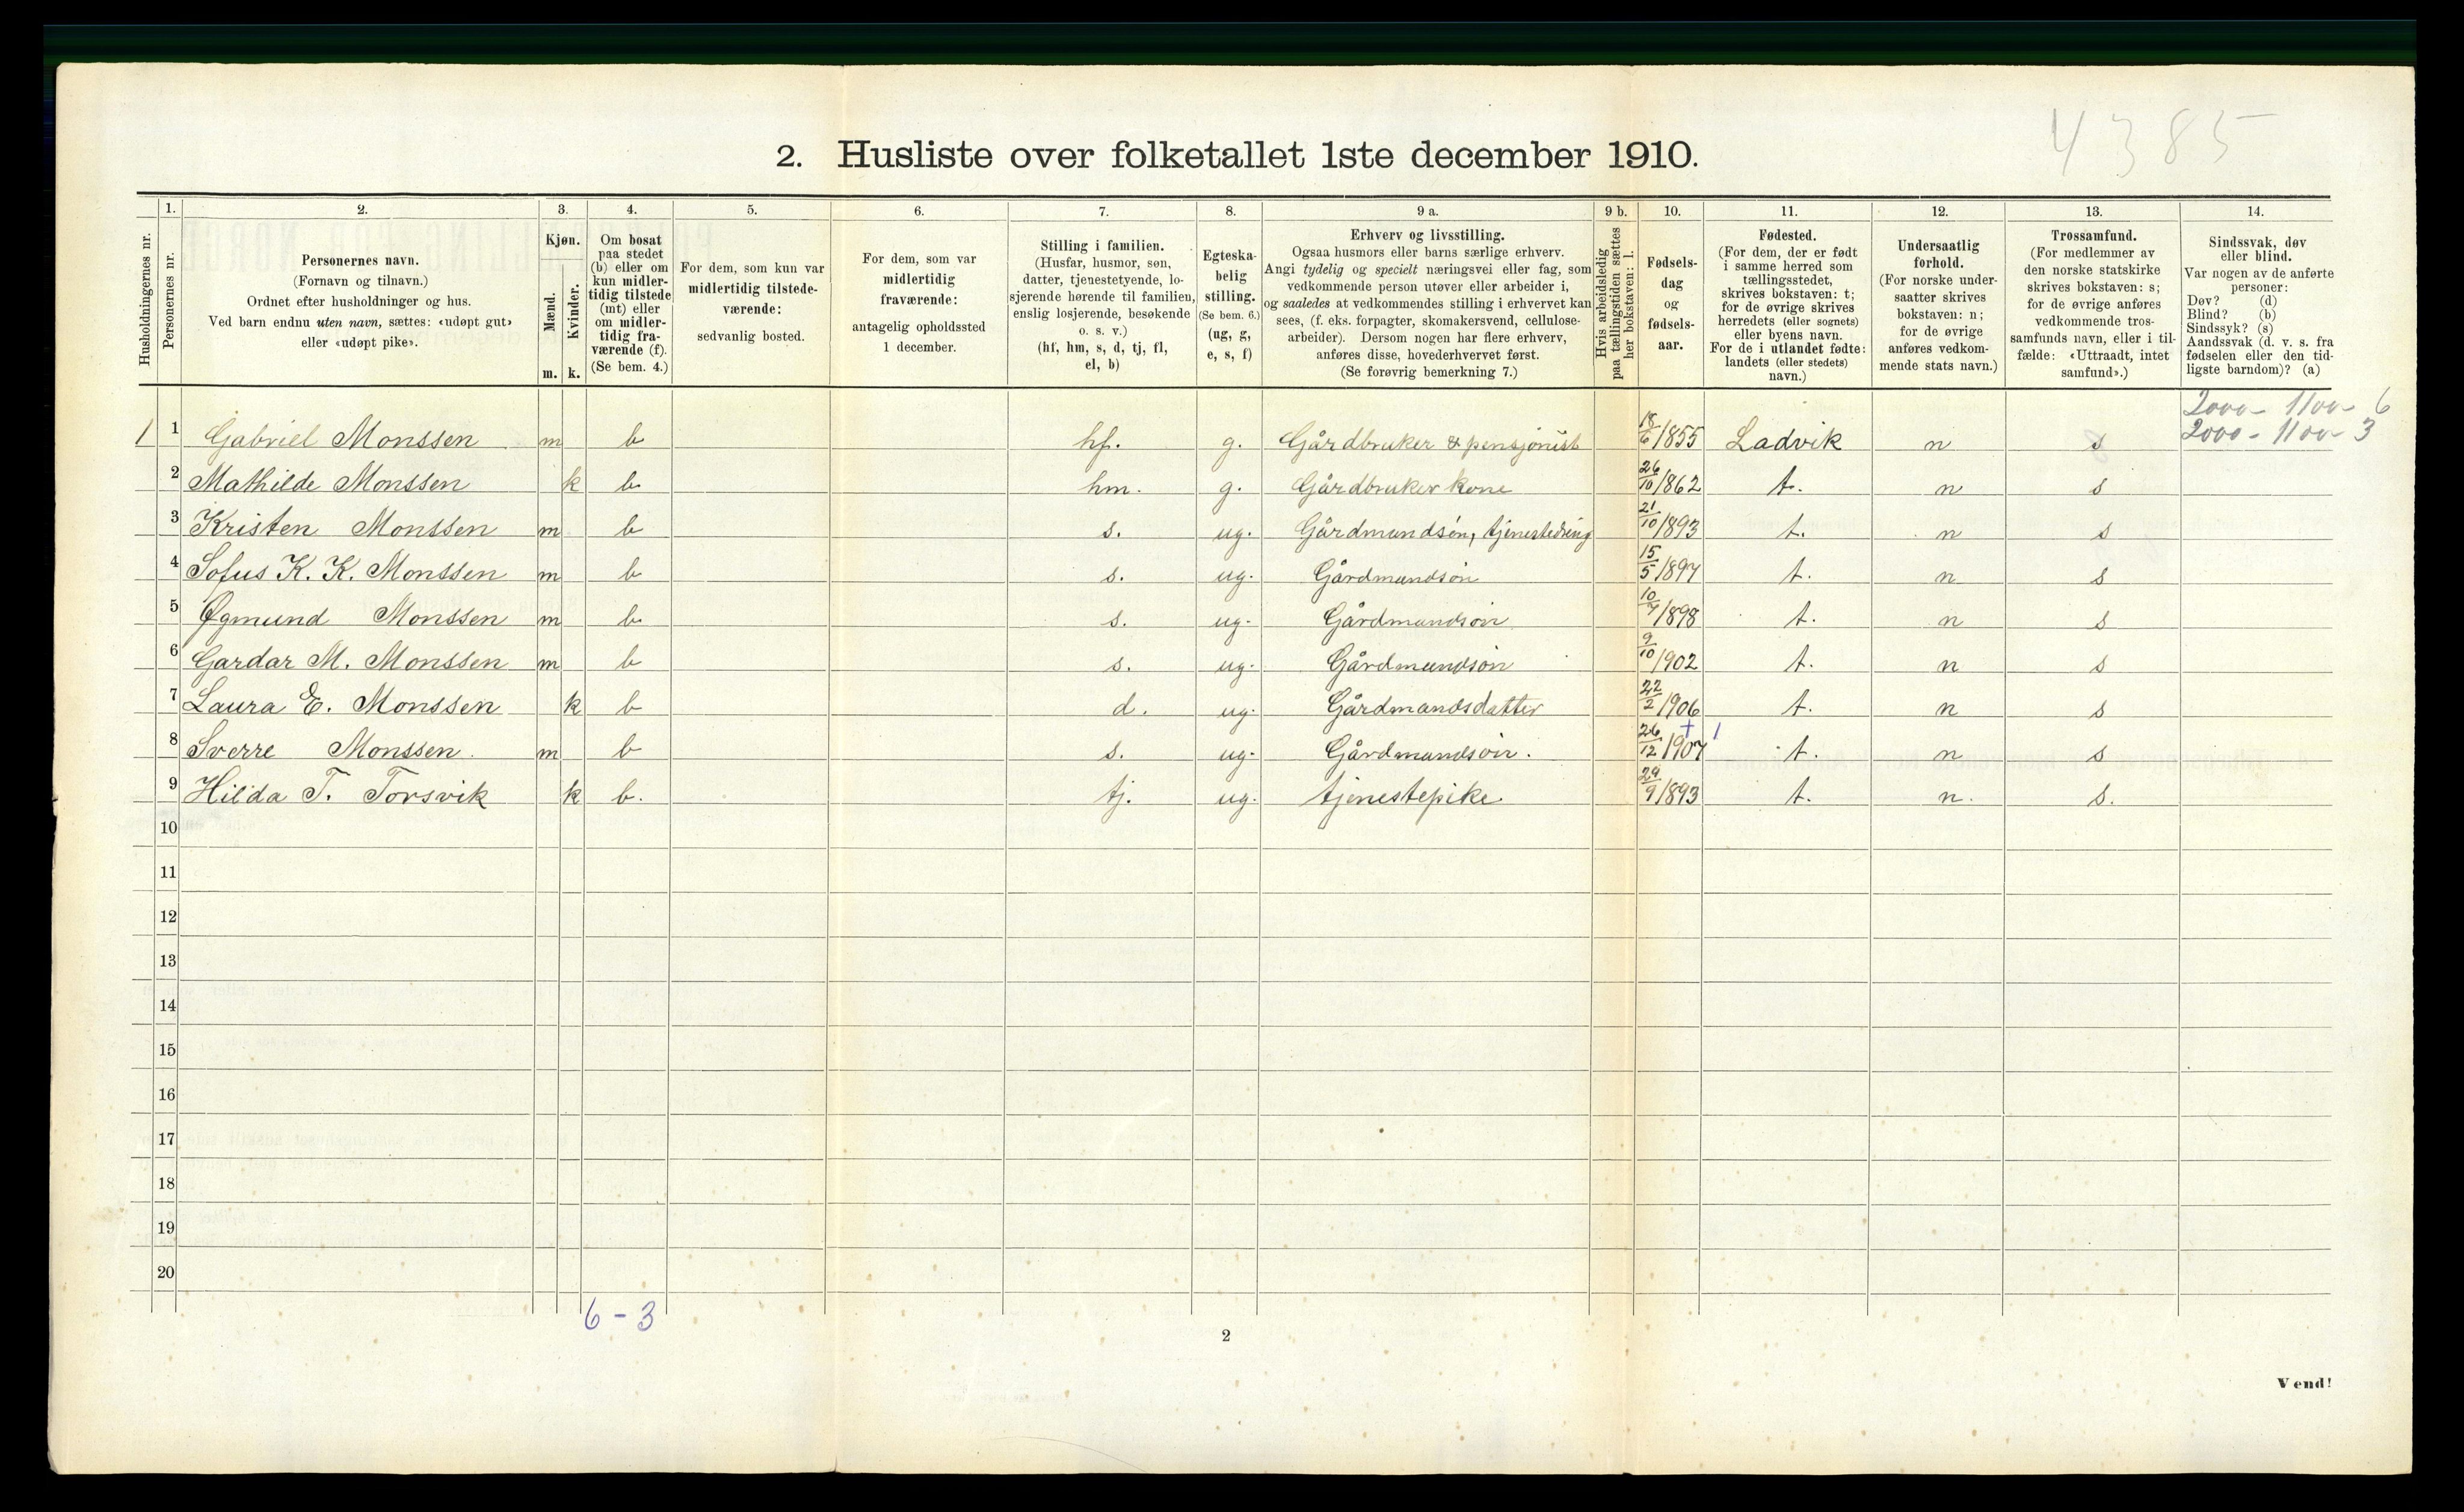 4385
2. Husliste over folketallet 1ste december 1910.
Husholdningernes nr.
1.
Personernes nr.
2.
Personernes navn.
(Fornavn og tilnavn.)
Ordnet efter husholdninger og hus.
Ved barn endnu uten navn, sættes: «udøpt gut»
eller «udøpt pike».
3.
Kjøn.
Mænd.
Kvinder.
m. k.
4.
Om bosat
paa stedet
(b) eller om
kun midler-
tidig tilstede
(mt) eller
om midler-
tidig fra-
værende (f).
(Se bem. 4.)
5.
For dem, som kun var
midlertidig tilstede-
værende:
sedvanlig bosted.
6.
For dem, som var
midlertidig
fraværende:
antagelig opholdssted
1 december.
7.
Stilling i familien.
(Husfar, husmor, søn,
datter, tjenestetyende, lo-
sjerende hørende til familien,
enslig losjerende, besøkende
o. s. v.)
(hf, hm, s, d, tj, fl,
el, b)
8.
Egteska-
belig
stilling.
(Se bem. 6.)
(ug, g,
e, s, f)
9 a.
Erhverv og livsstilling.
Ogsaa husmors eller barns særlige erhverv.
Angi tydelig og specielt næringsvei eller fag, som
vedkommende person utøver eller arbeider i,
og saaledes at vedkommendes stilling i erhvervet kan
sees, (f. eks. forpagter, skomakersvend, cellulose-
arbeider). Dersom nogen har flere erhverv,
anføres disse, hovederhvervet først.
(Se forøvrig bemerkning 7.)
9 b.
Hvis arbeidsledig
paa tællingstiden sættes
her bokstaven: l.
10.
Fødsels-
dag
og
fødsels-
aar.
11.
Fødested.
(For dem, der er født
i samme herred som
tællingsstedet,
skrives bokstaven: t;
for de øvrige skrives
herredets (eller sognets)
eller byens navn.
For de i utlandet fødte:
landets (eller stedets)
navn.)
12.
Undersaatlig
forhold.
(For norske under-
saatter skrives
bokstaven: n;
for de øvrige
anføres vedkom-
mende stats navn.)
13.
Trossamfund.
(For medlemmer av
den norske statskirke
skrives bokstaven: s;
for de øvrige anføres
vedkommende tros-
samfunds navn, eller i til-
fælde: «Uttraadt, intet
samfund».)
14.
Sindssvak, døv
eller blind.
Var nogen av de anførte
personer:
Døv? (d)
Blind? (b)
Sindssyk? (s)
Aandssvak (d. v. s. fra
fødselen eller den tid-
ligste barndom)? (a)
2000 - 1100 - 6
2000 - 1100 - 3
1 1 Gabriel Monssen m b hf. g. Gårdbruker & pensjonist 18/6 1855 Ladvik n s
2 Mathilde Monssen k b. hm. g. Gårdbruker kone 26/10 1862 t. n s
3 Kristen Monssen m b s. ug. Gårdmandsön, tjenestedreng 21/10 1893 t. n s
4 Sofus K. K. Monssen m b s. ug. Gårdmandsön 15/5 1897 t. n s
5 Øgmund Monssen m b. s. ug. Gårdmandsön 10/7 1898 t. n s
6 Gardar M. Monssen m b s. ug. Gårdmandsön 9/10 1902 t. n s
7 Laura E. Monssen k b d. ug. Gårdmandsdatter 22/2 1906 t. n s
8 Sverre Monssen. m b s. ug. Gårdmandsön. 26/12 1907 + 1 t. n s
9 Hilda T. Torsvik k b. tj. ug. tjenestepike 29/9 1893 t. n. s.
10
11
12
13
14
15
16
17
18
19
20
6 - 3
2
Vend!